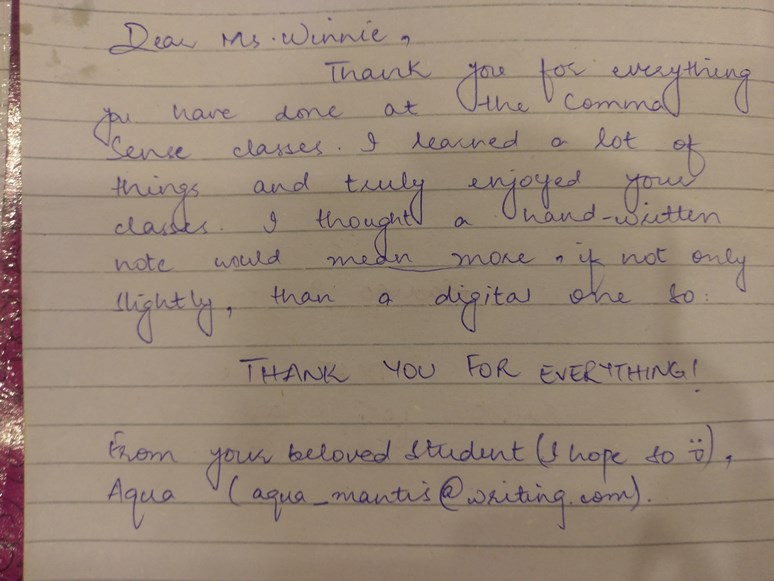 Dear Ms. Winnie,
Thank you for everything
you have done at the Comma
Sense classes. I learned a lot of
things and truly enjoyed your
classes. I thought a hand-written
note would mean more, if not only
slightly, than a digital one so:
THANK YOU FOR EVERYTHING!
From your beloved student (I hope so ü),
Aqua (aqua_mantis@writing.com).